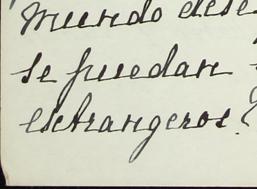 mundo dese
se puedan
estrangeros.